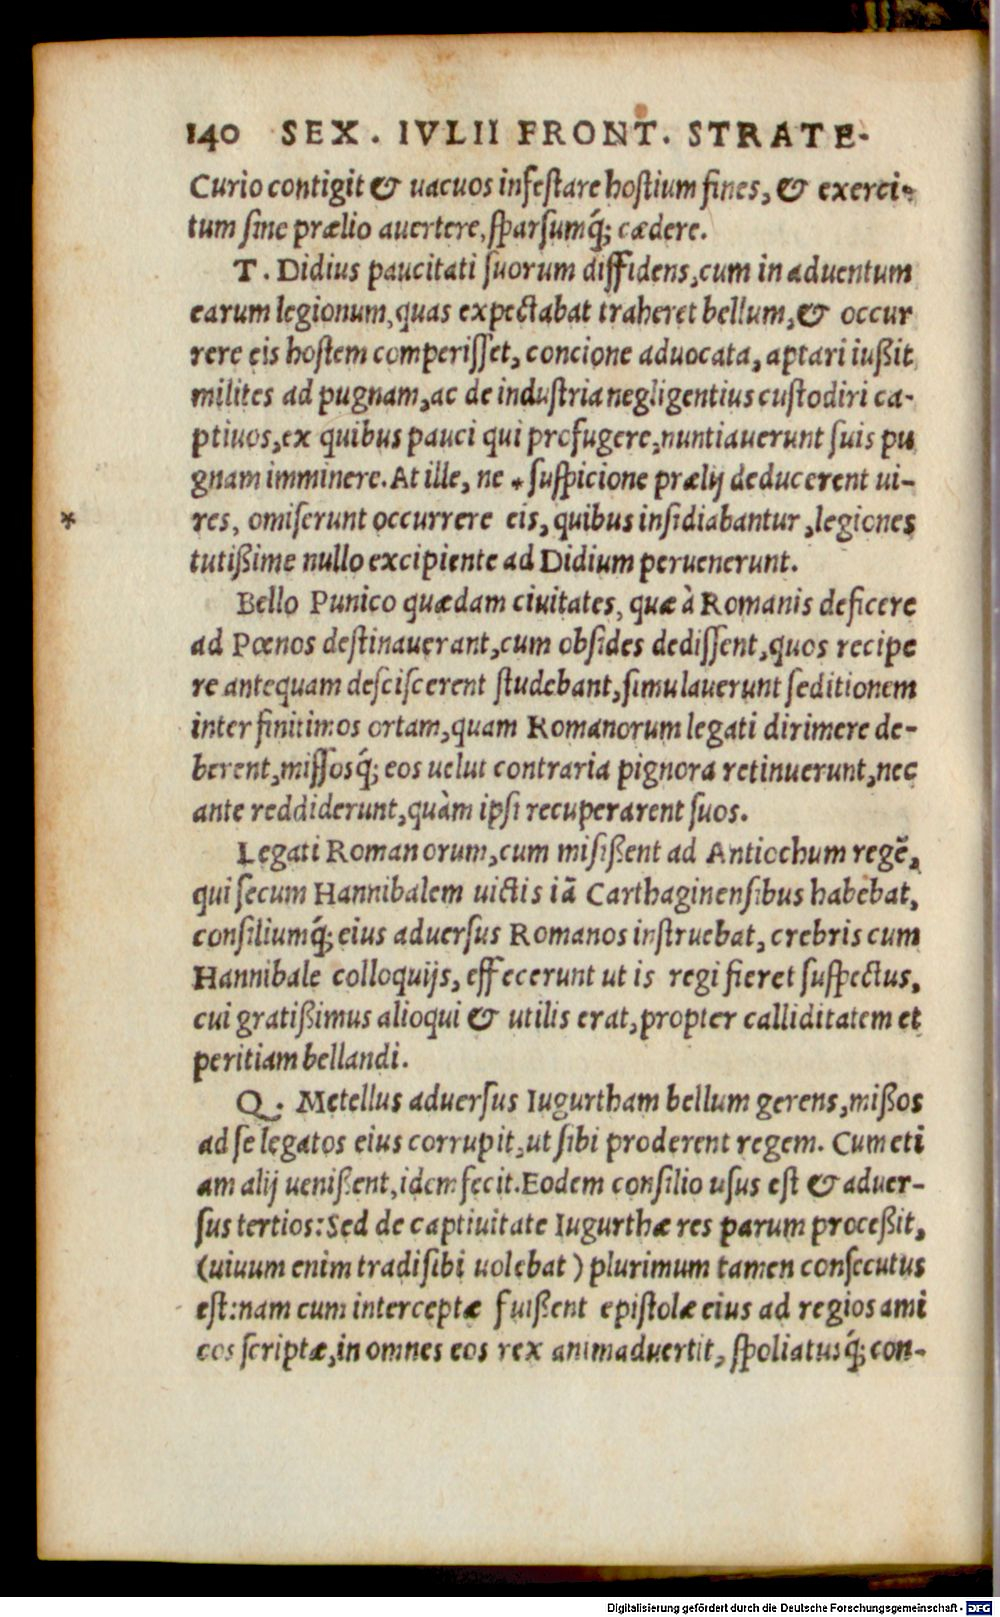 140 SEX. IVLII FRONT. STRATE-
Curio contigit & uacuos infestare hostium fines, & exerci-
tum sine prælio auertere, sparsumq́; cædere.
T. Didius paucitati suorum diffidens, cum in aduentum
earum legionum, quas expectabat traheret bellum, & occur
rere eis hostem comperisset, concione aduocata, aptari iußit
milites ad pugnam, ac de industria negligentius custodiri ca-
ptiuos, ex quibus pauci qui profugere, nuntiauerunt suis pu
gnam imminere. At ille, ne * suspicione prælij deducerent ui-
* res, omiserunt occurrere eis, quibus insidiabantur, legiones
tutißime nullo excipiente ad Didium peruenerunt.
Bello Punico quædam ciuitates, quæ à Romanis deficere
ad Pœnos destinauerant, cum obsides dedissent, quos recipe
re antequam desciscerent studebant, simulauerunt seditionem
inter finitimos ortam, quam Romanorum legati dirimere de-
berent, missosq́; eos uelut contraria pignora retinuerunt, nec
ante reddiderunt, quàm ipsi recuperarent suos.
Legati Romanorum, cum misißent ad Antiochum regē,
qui secum Hannibalem uictis iā Carthaginensibus habebat,
consiliumq́; eius aduersus Romanos instruebat, crebris cum
Hannibale colloquijs, effecerunt ut is regi fieret suspectus,
cui gratißimus alioqui & utilis erat, propter calliditatem et
peritiam bellandi.
Q. Metellus aduersus Iugurtham bellum gerens, mißos
ad se legatos eius corrupit, ut sibi proderent regem. Cum eti
am alij uenißent, idem fecit. Eodem consilio usus est & aduer-
sus tertios: Sed de captiuitate Iugurthæ res parum proceßit,
(uiuum enim tradi sibi uolebat) plurimum tamen consecutus
est: nam cum interceptæ fuißent epistolæ eius ad regios ami
cos scriptæ, in omnes eos rex animaduertit, spoliatusq́; con-
Digitalisierung gefördert durch die Deutsche Forschungsgemeinschaft - DFG